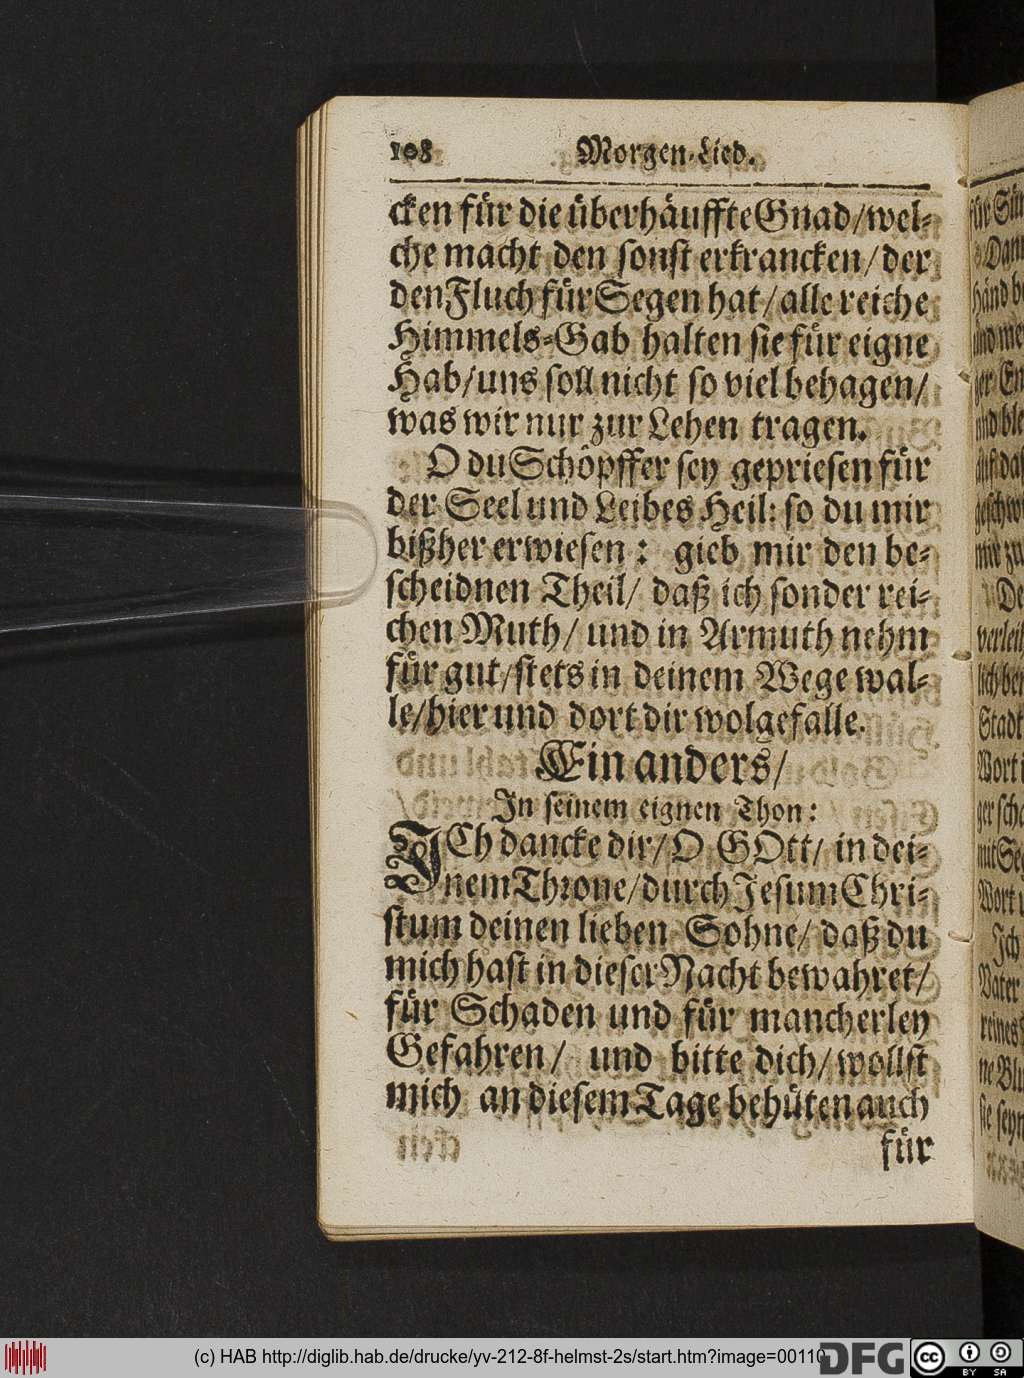 108 Morgen-Lied.
cken für die überhäuffte Gnad/ wel-
che macht den sonst erkrancken/ der
den Fluch für Segen hat/ alle reiche
Himmels-Gab halten sie für eigne
Hab/ uns soll nicht so viel behagen/
was wir nur zur Lehen tragen.
O du Schöpffer sey gepriesen für
der Seel und Leibes Heil: so du mir
bißher erwiesen: gieb mir den be-
scheidnen Theil/ daß ich sonder rei-
chen Muth/ und in Armuth nehm
für gut/ stets in deinem Wege wal-
le/ hier und dort dir wolgefalle.
Ein anders/
In seinem eignen Thon:
ICh dancke dir/ O GOtt/ in dei-
nem Throne/ durch Jesum Chri-
stum deinen lieben Sohne/ daß du
mich hast in dieser Nacht bewahret/
für Schaden und für mancherley
Gefahren/ und bitte dich/ wollst
mich an diesem Tage behüten auch
für
für Sün
Dan
händ b
und we
ger En
und ble
auf da
geschw
mir zu
De
verleih
lich ber
Stadt
Wort i
ger sche
mit Se
Wort u
Ich
Vater
reines
ne Blu
sie seyn
(c) HAB http://diglib.hab.de/drucke/yv-212-8f-helmst-2s/start.htm?image=00110
DFG
cc BY SA